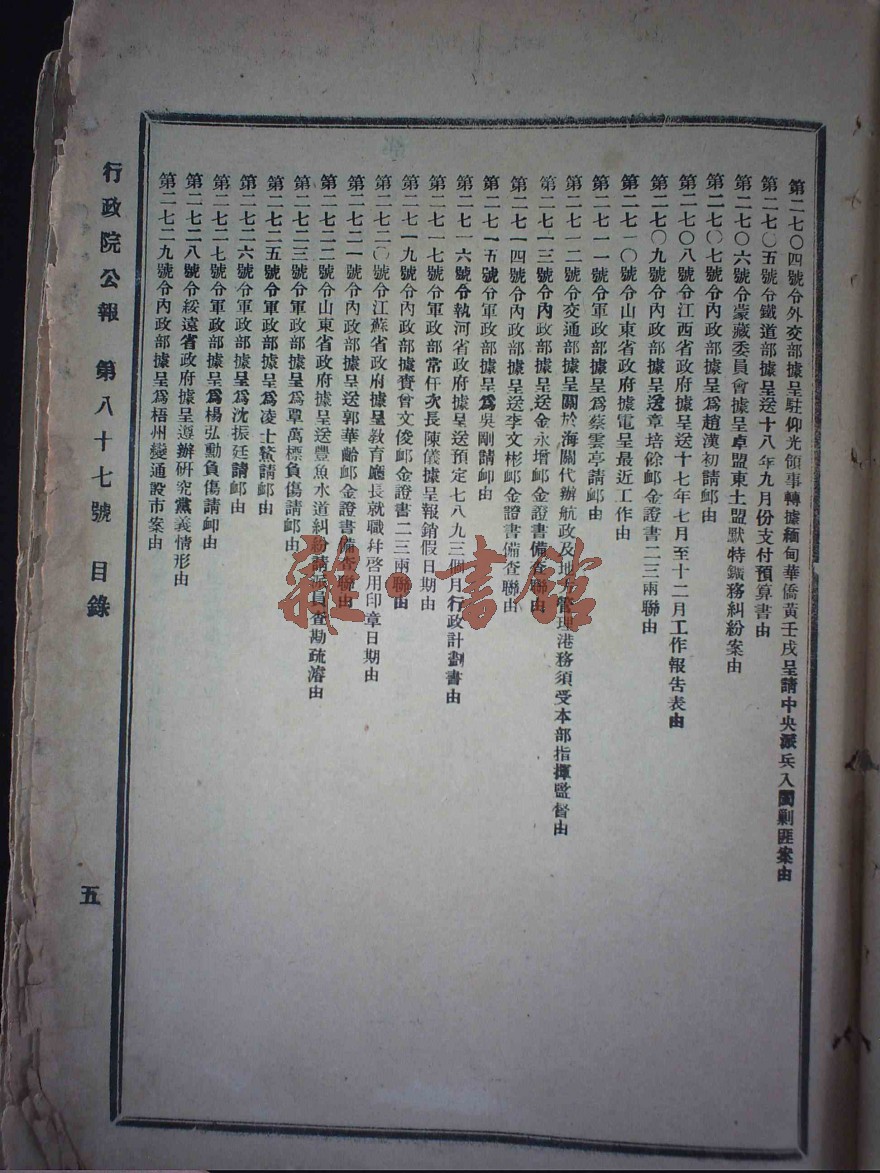 第二七〇四號令外交部據呈駐仰光領事轉據緬甸華僑黃壬戌呈請中央派兵入閩剿匪案由
第二七〇五號令鐵道部據呈送十八年九月份支付預算書由
第二七〇六號令蒙藏委員會據呈卓盟東土盟默特鑛務糾紛案由
第二七〇七號令內政部據呈爲趙漢初請邮由
第二七〇八號令江西省政府據呈送十七年七月至十二月工作報告表由
第二七〇九號令內政部據呈送章培餘邮金證書二三兩聯由
第二七一〇號令山東省政府據電呈最近工作由
第二七一一號令軍政部據呈爲蔡雲亭請邮由
第二七一二號令交通部據呈關於海關代辦航政及地方管理港務須受本部指揮監督由
第二七一三號令內政部據呈送金永增邮金證書備查聯由
第二七一四號令內政部據呈送李文彬邮金證書備查聯由
第二七一五號令軍政部據呈爲吳剛請卹由
第二七一六號令執河省政府據呈送預定七八九三個月行政計劃書由
第二七一七號令軍政部常任次長陳儀據呈報銷假日期由
第二七一九號令內政部據賚曾文俊邮金證書二三兩聯由
第二七二〇號令江蘇省政府據呈敎育廳長就職幷啓用印章日期由
第二七二一號令內政部據呈送郭華齡邮金證書備查聯由
第二七二二號令山東省政府據呈送豐魚水道糾紛請派員查勘疏濬由
第二七二三號令軍政部據呈爲覃萬標負傷請邮由
第二七二五號令軍政部據呈爲凌士鰲請邮由
第二七二六號令軍政部據呈爲沈振廷請邮由
第二七二七號令軍政部據呈爲楊弘勳負傷請卹由
第二七二八號令綏遠省政府據呈遵辦硏究黨義情形由
第二七二九號令內政部據呈爲梧州變通設市案由
行政院公報 第八十七號 目錄
五
雜·書館